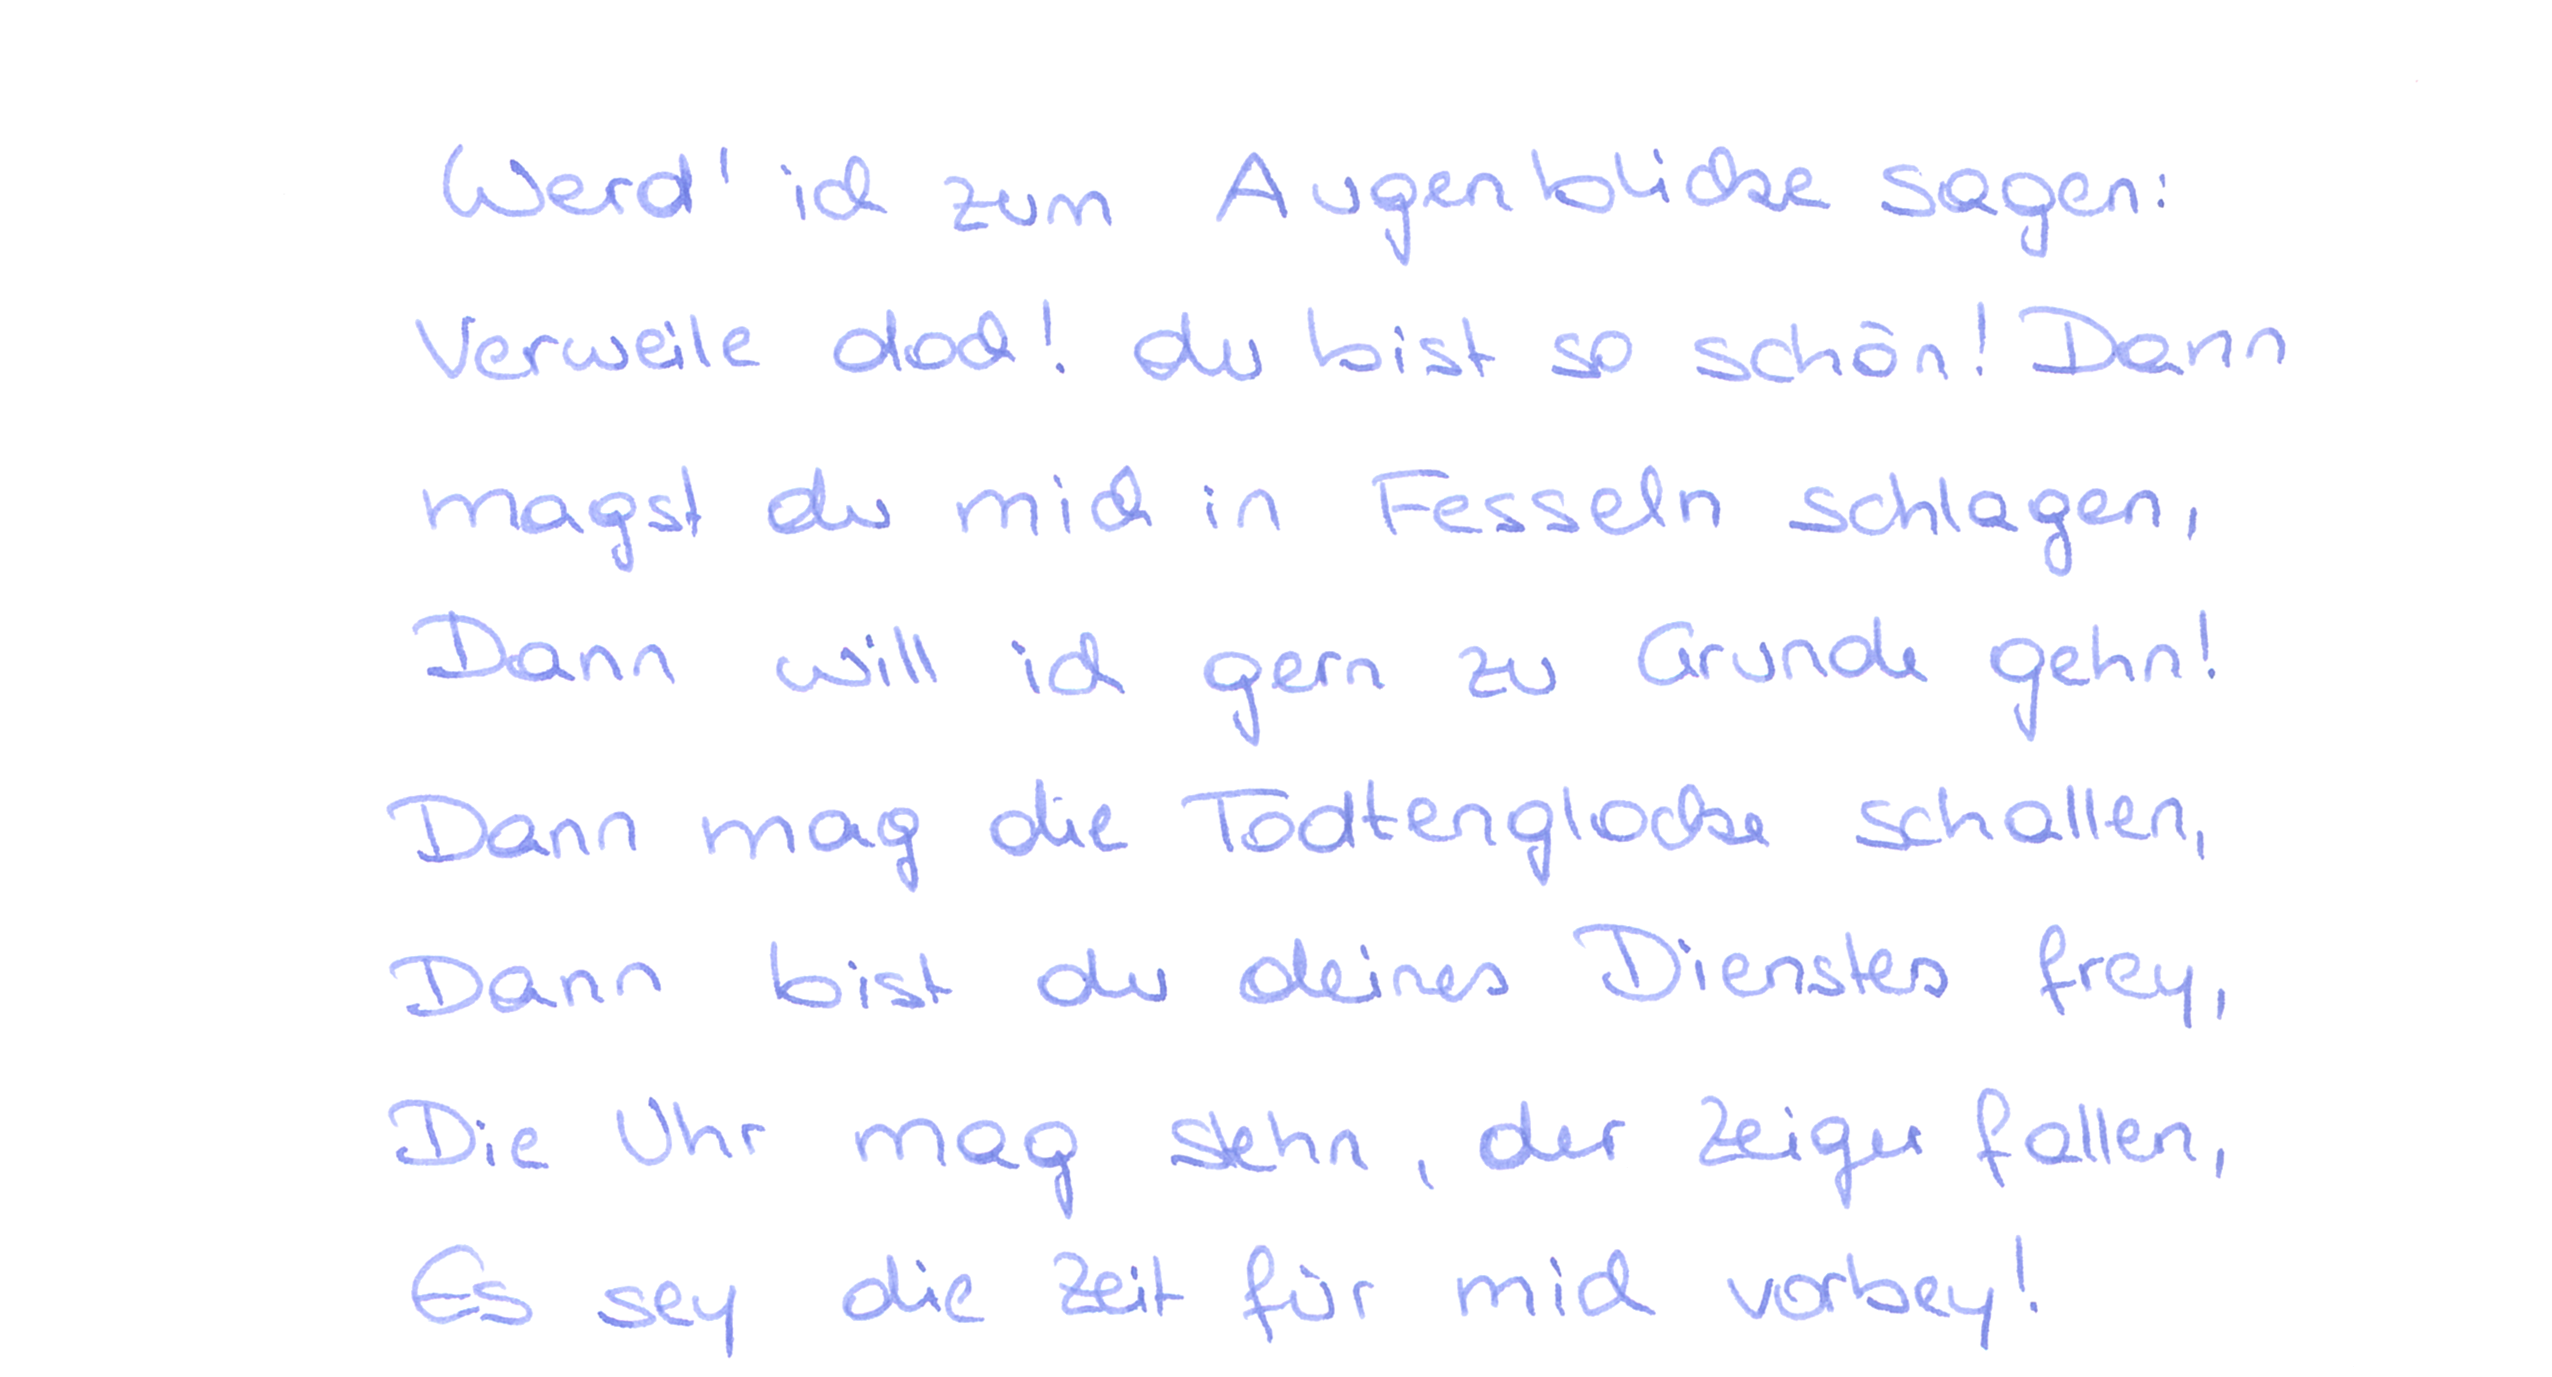 Werd' ich zum Augenblicke sagen:
Verweile doch! du bist so schön! Dann
magst du mich in Fesseln schlagen,
Dann will ich gern zu Grunde gehn!
Dann mag die Todtenglocke schallen,
Dann bist du deines Dienstes frey,
Die Uhr mag stehn, der Zeiger fallen,
Es sey die Zeit für mich vorbey!